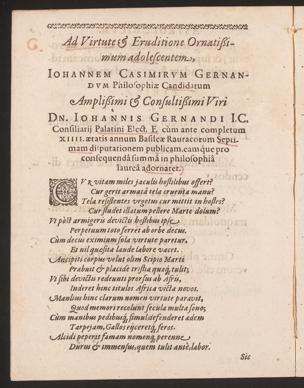 G.
Ad Virtute & Eruditione Ornatißi-
mum adolescentem,
IOHANNEM CASIMIRVM GERNAN-
DVM Philosophiæ Candidatum
Amplißimi & Consultißimi Viri
DN. IOHANNIS GERNANDI I.C.
Consiliarij Palatini Elect. &c. cùm ante completum
XIIII. ætatis annum Basileæ Rauracorum Septi-
mam disputationem publicam, eam que pro
consequendâ summâ in philosophiâ
laureâ adornaret.
CVr vitam miles jaculis hostilibus offert?
Cur gerit armatâ tela cruenta manu?
Tela resistentes vegetus cur mittit in hostes?
Cur studet illatum pellere Marte dolum?
Vt passt armigeris devictis hostibus ipse,
Perpetuum toto ferret ab orbe decus.
Cùm decus eximium sola virtute paretur,
Et nil quæsita laude labore vacet.
Ancipiti corpus velut olim Scipio Marti
Præbuit & placidè tristia quæq́; tulit;
Vt sibi devictis redeunti prorsus ab Afris,
Inderet hinc titulos Africa victa novos.
Manlius hinc clarum nomen virtute paravit,
Quod memori recolunt secula multa sono;
Cùm manibus pedibusq́; simul defenderet ædem
Tarpejam, Gallos rijceretq́; feros.
Alcidi peperit famam nomenq́; perenne
Durus & immensus, quem tulit antè, labor.
Sic